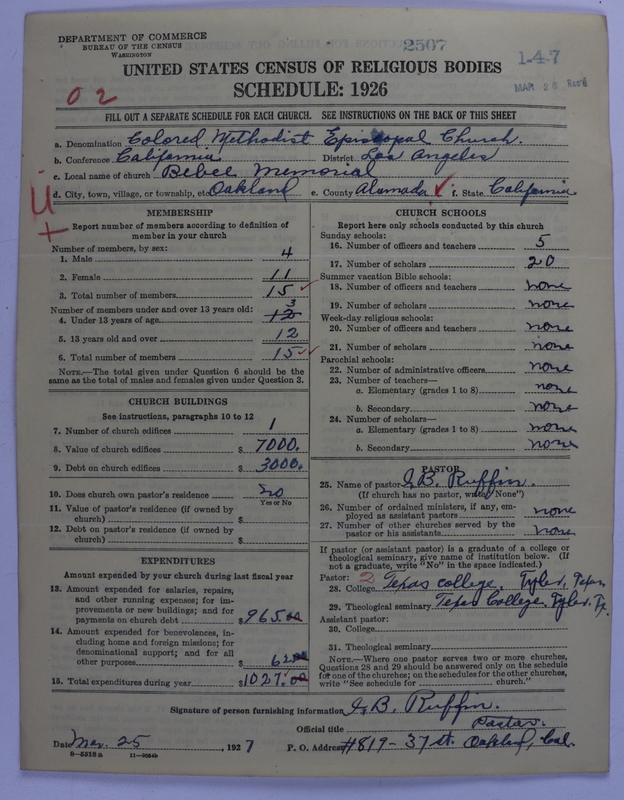 DEPARTMENT OF COMMERCE
BUREAU OF THE CENSUS
WASHINGTON
2507
1-4-7
MAR 26 Rec'd
UNITED STATES CENSUS OF RELIGIOUS BODIES
SCHEDULE: 1926
02
FILL OUT A SEPARATE SCHEDULE FOR EACH CHURCH. SEE INSTRUCTIONS ON THE BACK OF THIS SHEET
a. Denomination Colored Methodist Episcopal Church.
b. Conference California District Los Angeles
c. Local name of church Bebee Memorial
d. City, town, village, or township, etc Oakland e. County Alamada f. State California
MEMBERSHIP
Report number of members according to definition of
member in your church
Number of members, by sex:
1. Male 4
2. Female 11
3. Total number of members 15
Number of members under and over 13 years old:
4. Under 13 years of age 12 3
5. 13 years old and over 12
6. Total number of members 15
NOTE.—The total given under Question 6 should be
the same as the total of males and females given under Question 3.
CHURCH BUILDINGS
See instructions, paragraphs 10 to 12
7. Number of church edifices 1
8. Value of church edifices $7000.
9. Debt on church edifices $3000.
10. Does church own pastor's residence No
Yes or No
11. Value of pastor's residence (if owned by
church) $
12. Debt on pastor's residence (if owned by
church) $
EXPENDITURES
Amount expended by your church during last fiscal year
13. Amount expended for salaries, repairs,
and other running expenses; for im-
provements or new buildings; and for
payments on church debt $965.00
14. Amount expended for benevolences, in-
cluding home and foreign missions; for
denominational support; and for all
other purposes $62.00
15. Total expenditures during year $1027.00
CHURCH SCHOOLS
Report here only schools conducted by this church
Sunday schools:
16. Number of officers and teachers 5
17. Number of scholars 20
Summer vacation Bible schools:
18. Number of officers and teachers none
19. Number of scholars none
Week-day religious schools:
20. Number of officers and teachers none
21. Number of scholars none
Parochial schools:
22. Number of administrative officers none
23. Number of teachers—
a. Elementary (grades 1 to 8) none
b. Secondary none
24. Number of scholars—
a. Elementary (grades 1 to 8) none
b. Secondary none
PASTOR
25. Name of pastor J.B. Ruffin.
(If church has no pastor, write "None")
26. Number of ordained ministers, if any, em-
ployed as assistant pastors none
27. Number of other churches served by the
pastor or his assistants none
If pastor (or assistant pastor) is a graduate of a college or
theological seminary, give name of institution below. (If
not a graduate, write "No" in the space indicated.)
Pastor: 2
28. College Texas College, Tyler, Texas
29. Theological seminary Texas College, Tyler, Tx.
Assistant pastor:
30. College
31. Theological seminary
NOTE.—Where one pastor serves two or more churches,
Questions 28 and 29 should be answered only on the schedule
for one of the churches; on the schedules for the other churches,
write "See schedule for church."
Signature of person furnishing information J.B. Ruffin.
Official title Pastor.
Date Mar. 25, 1927 P. O. Address #819-37 st. Oakland, Cal.